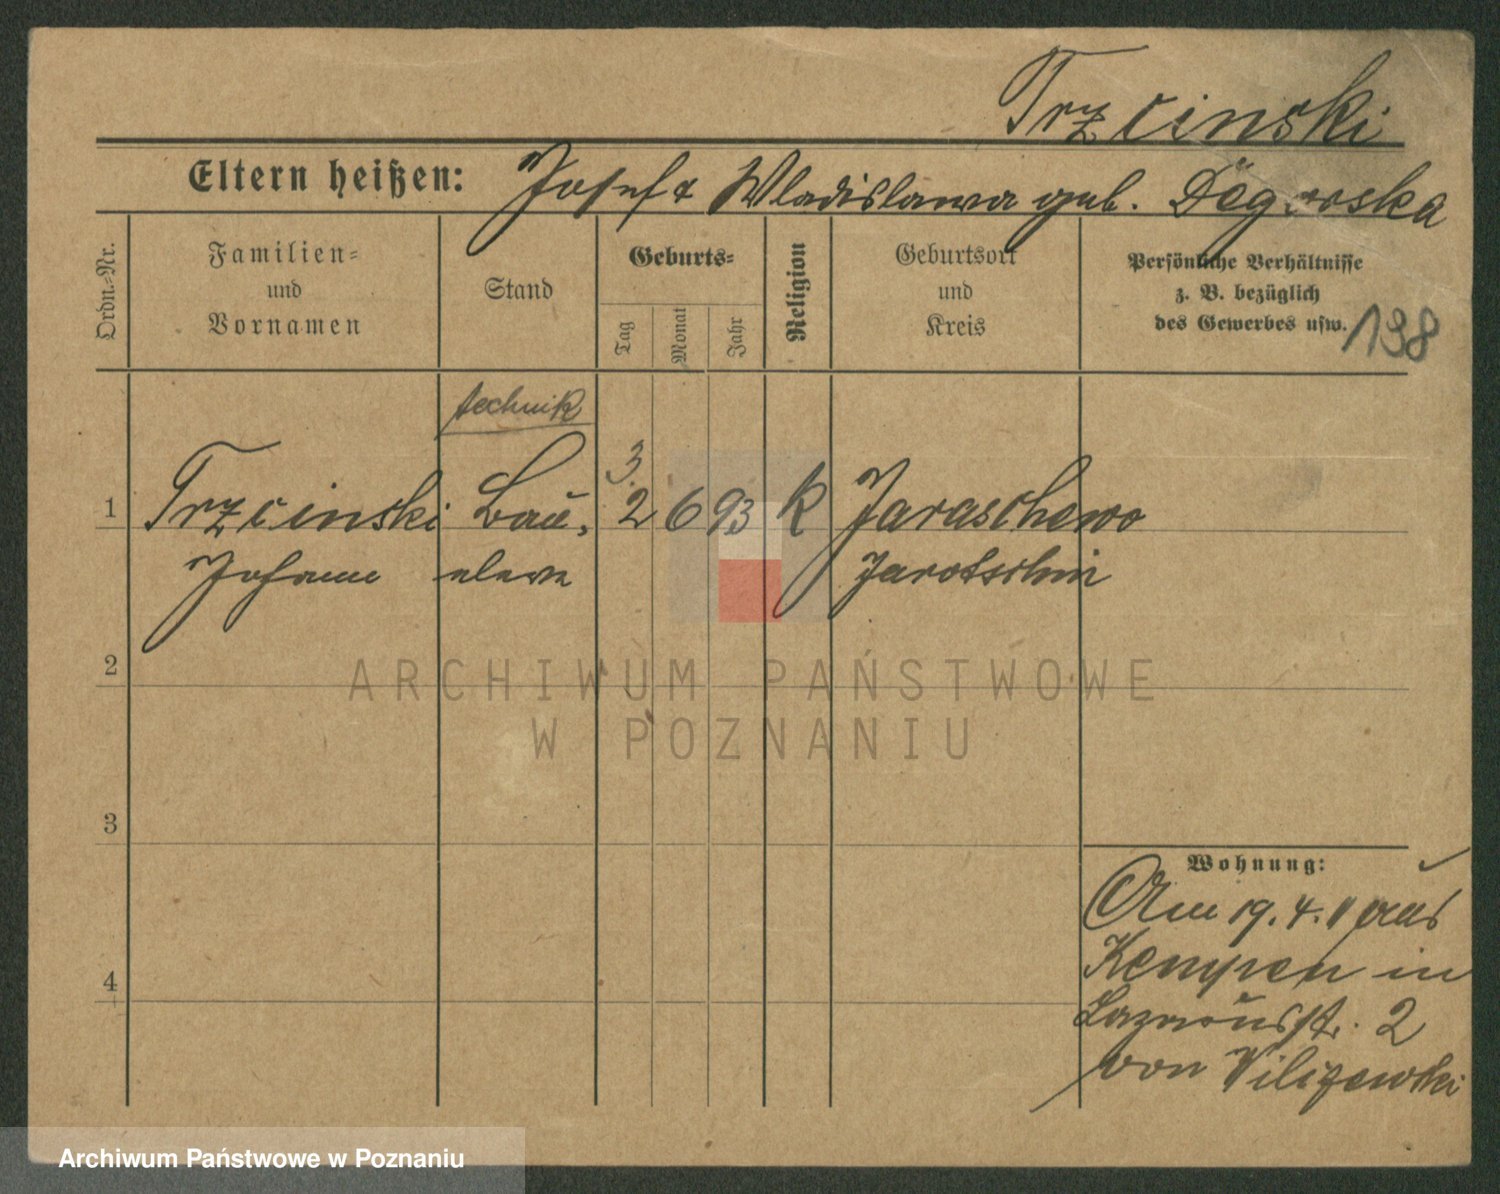 Trzcinski
Eltern heißen: Josef & Wladislawa geb.
Ordn.-Nr.
Familien-
und
Vornamen
Stand
Geburts-
Tag
Monat
Jahr
Religion
Geburtsort
und
Kreis
Persönliche Verhältnisse
z. B. bezüglich
des Gewerbes usw.
198
technik
3.
1 Trzcinski Bau- 2 6 93 k Jaraschewo
Johann eleve Jarotschin
2
ARCHIWUM PAŃSTWOWE
W POZNANIU
3
Wohnung:
Am 19. 4. 11 aus
Kempen in
Lazarusstr. 2
von
4
Archiwum Państwowe w Poznaniu